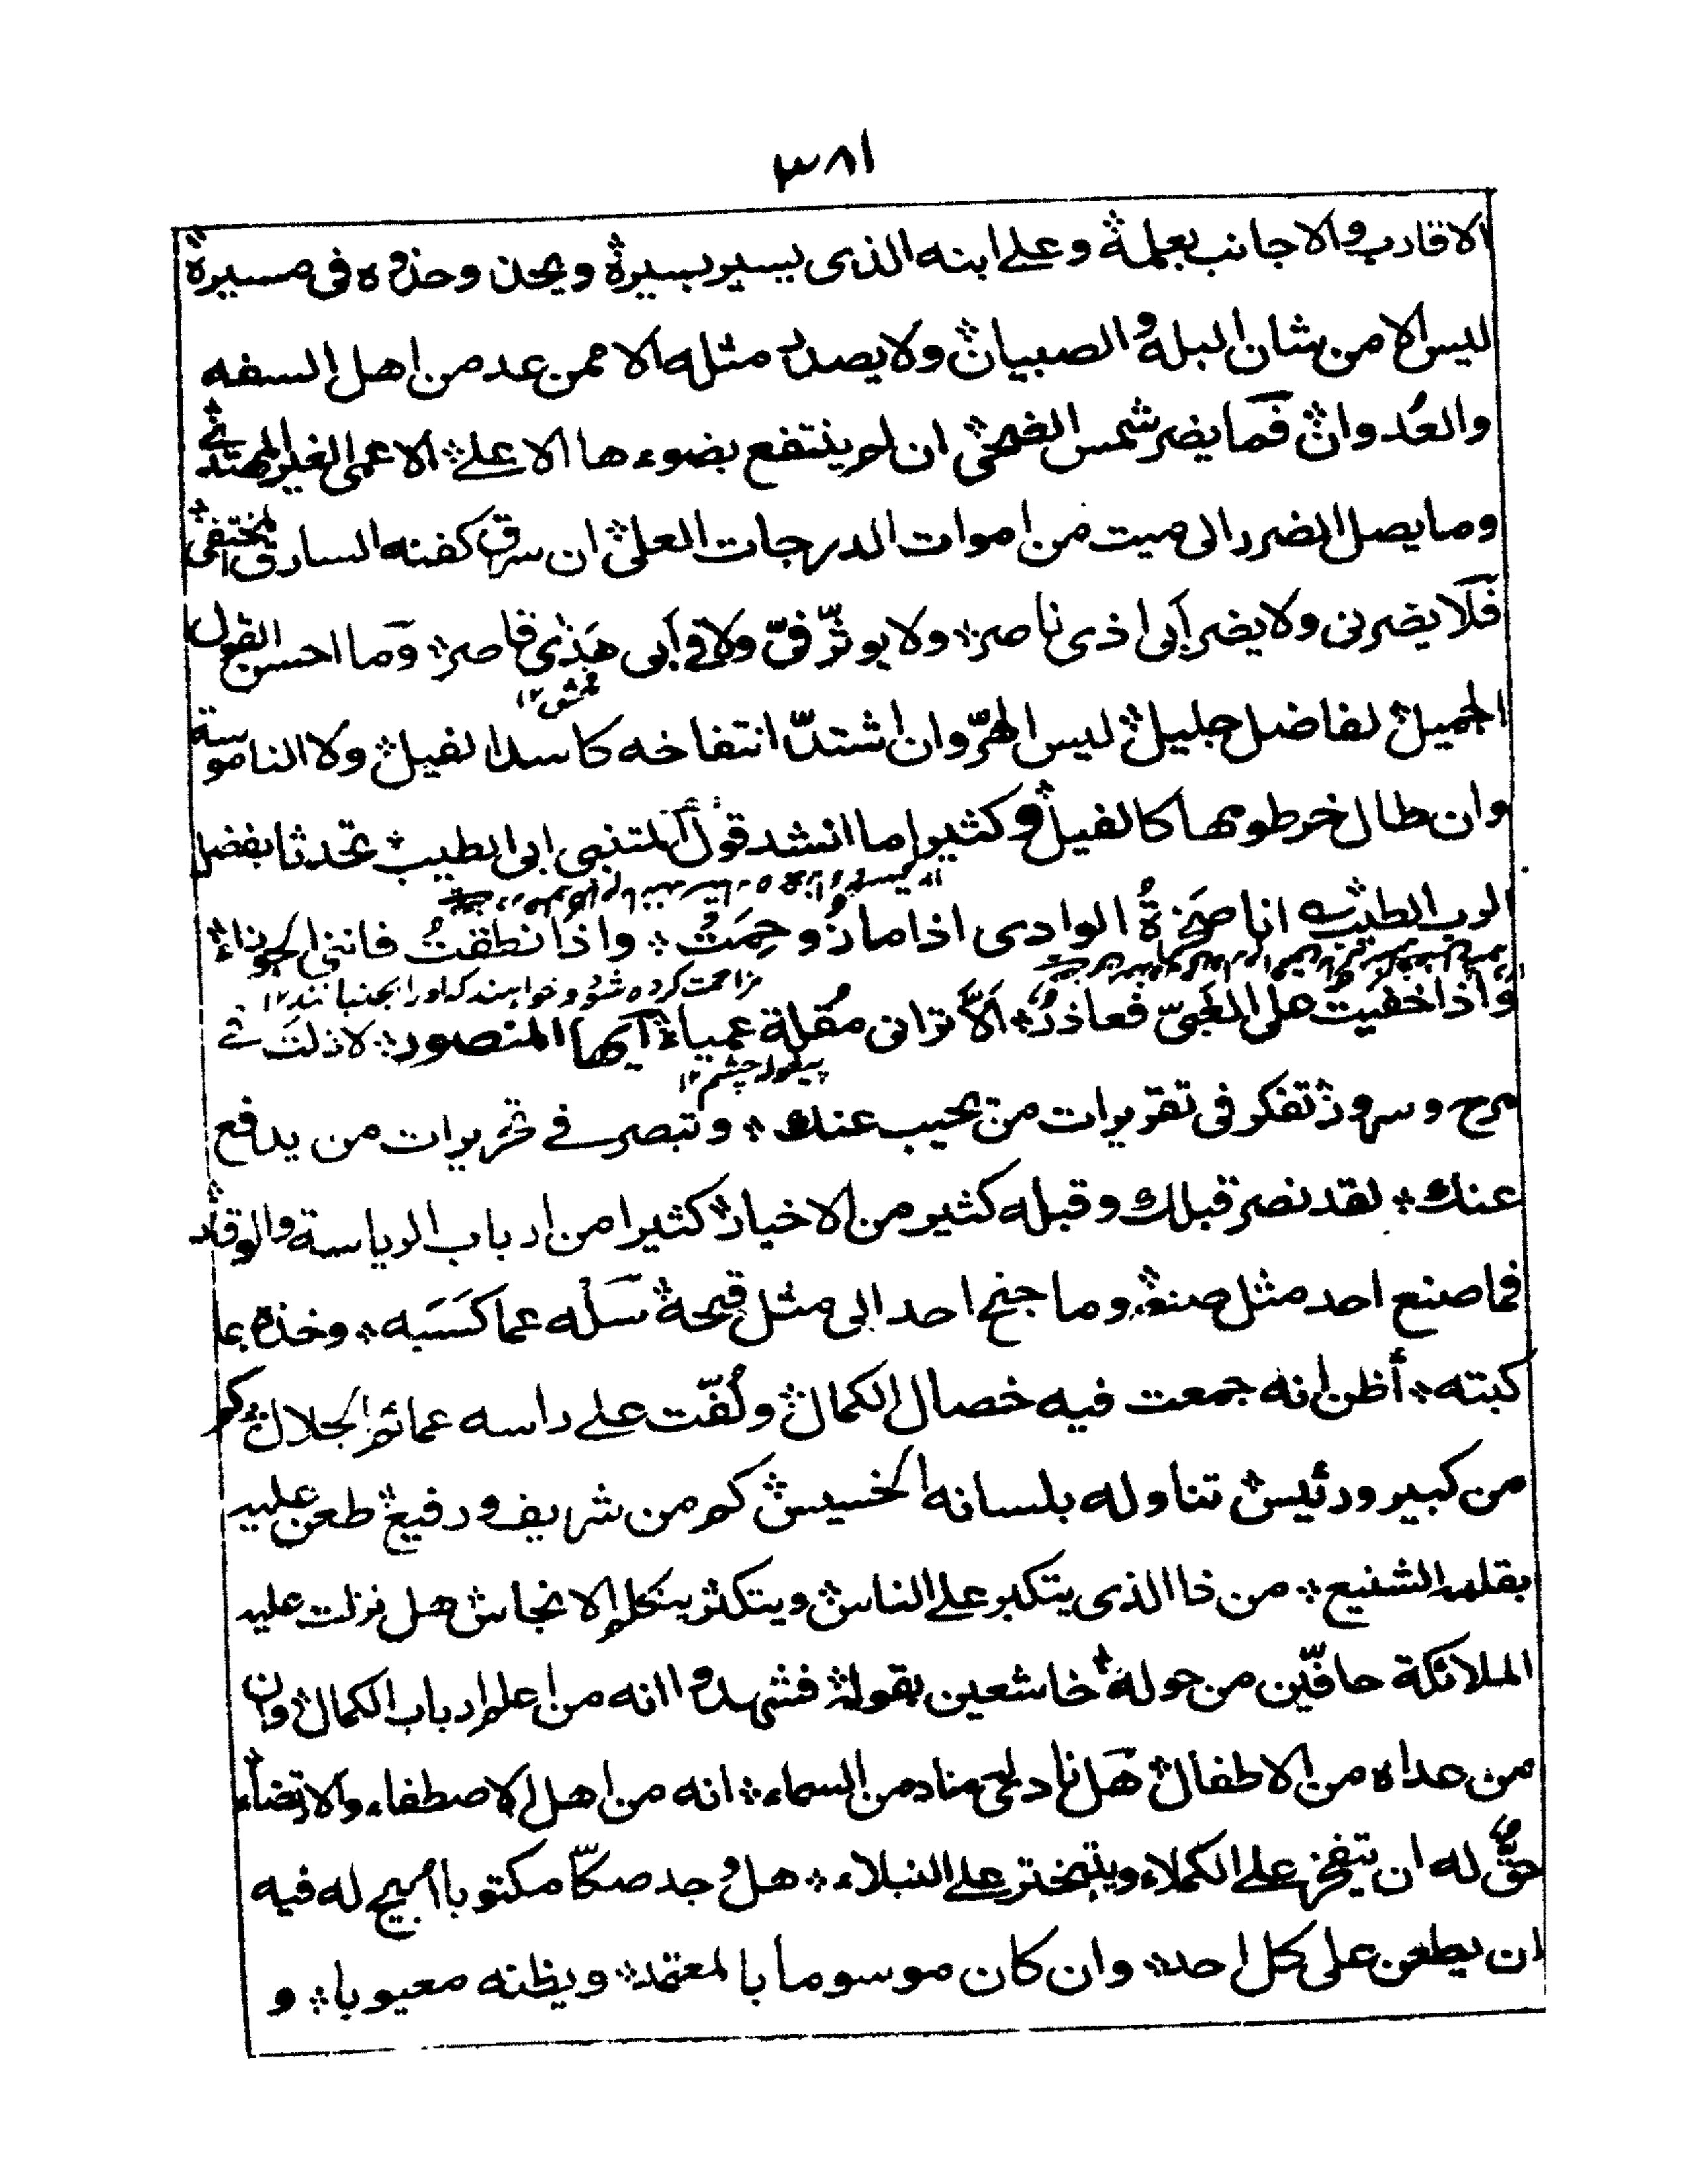 ٣٨١
الاقارب والاجانب بعلمه ۞ وعلى ابنه الذى يسير بسيرة ۞ ويحذو حذوه فى مسيرة ۞
ليس الا من شان البله والصبيان ۞ ولا يصدر مثله الا ممن عد من اهل السفه
والعُدوان ۞ فَما يضر شمس الضحى ۞ ان لم ينتفع بضوءها الاعلے ۞ الاعمى الغير المهتدى ۞
وما يصل الضرر الى ميت من اموات الدرجات العلى ۞ ان سرق كفنه السارق المختفى ۞
فَلا يضرنى ولا يضر اَبى اذى ناصر ۞ ولا يوثّر فىّ ولا فى اَبى هَذٰى قاصر ۞ وَما احسن القول
فحش ١٢
الجميل ۞ لفاضل جليل ۞ ليس الهرّ وان اشتدّ انتفاخه كاسد الفيل ۞ ولا الناموسة
وان طال خرطومها كالفيل ۞ وكثيرا ما انشد قول المتنبى ابى الطيب ۞ تحدثا بفضل
الرب الطيب ۞ انا صَخرةُ الوادى اذا ما زُوحِمَتُ ۞ واذا نطقتُ فاننى الجوزاء ۞
مزاحمت كرده شود و خواهند كه او را بجنبانند ١٢
وَاذا خفيتُ على الغَبىّ فعاذرٌ ۞ اَلّا ترانى مُقلة عمياء ۞ اَيها المنصور ۞ لا زلتَ فے
پیغوله چشم ١٢
مرح وسرور ۞ تفكر فى تقريرات من يجيب عنك ۞ وتبصر فے تحريرات من يدافع
عنك ۞ لقد نصر قبلك وقبله كثير من الاخيار ۞ كثيرا من ارباب الرياسة والوقار ۞
فما صنع احد مثل صنعه ۞ وما جنح احد الى مثل قبحه ۞ سَلْه عما كَسَبَه ۞ وخذه بما
كتبته ۞ أظن انه جمعت فيه خصال الكمال ۞ ولُفّت على راسه عمائم الجلال ۞ كم
من كبير ورئيس ۞ تناوله بلسانه الخسيس ۞ كم من شريف ورفيع ۞ طعن عليه
بقلمه الشنيع ۞ من ذا الذى يتكبر على الناس ۞ ويتكثر بتكلم الانجاس ۞ هل نزلت عليه
الملائكة حافّين من حوله ۞ خاشعين بقوله ۞ فشهدوا انه من اعلم ارباب الكمال ۞ وان
من عداه من الاطفال ۞ هَل نادى مناد من السماء ۞ انه من اهل الاصطفاء والارتضاء ۞
حقٌّ له ان يتفخر على الكملاء ويتبختر على النبلاء ۞ هل وجد صكّا مكتوبا ابيح له فيه
ان يطعن على كل احد ۞ وان كان موسوما بالمعتمد ۞ ويظنه معيوبا ۞ و